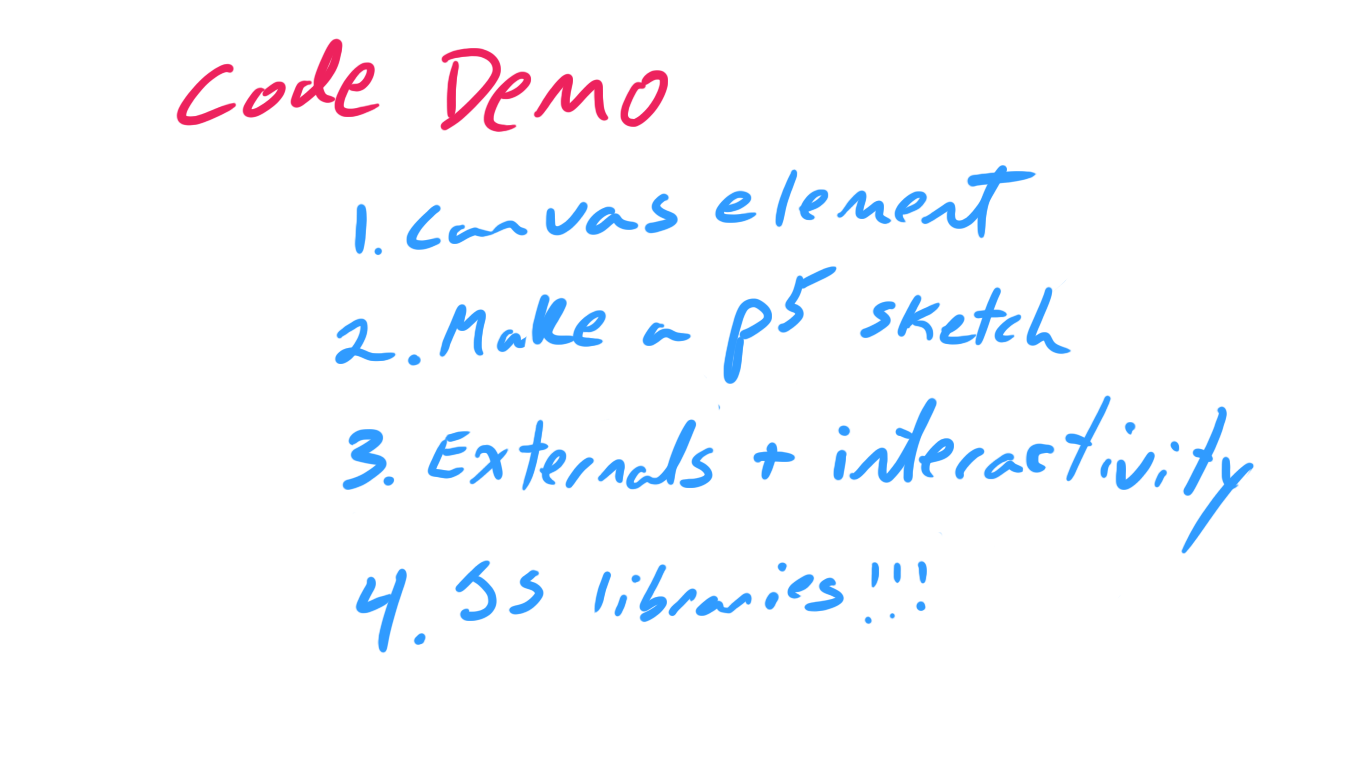 Code Demo
1. Canvas element
2. Make a p5 sketch
3. Externals + interactivity
4. JS libraries!!!